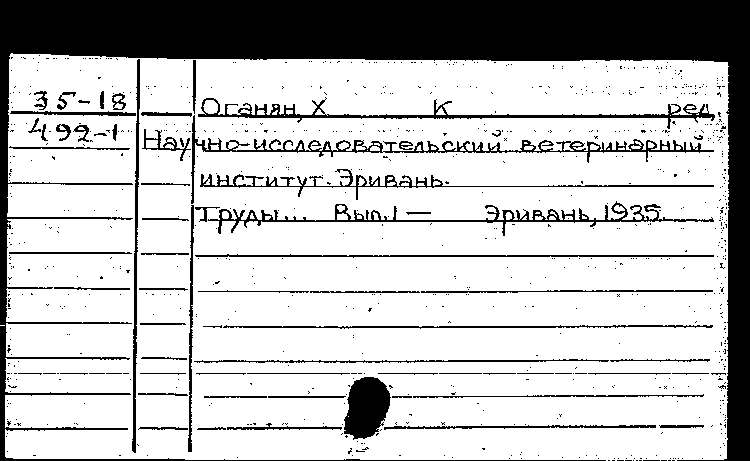 35-18 Оганян, Х К ред.
492-1 Научно-исследовательский ветеринарный
институт. Эривань.
Труды... Вып.1 — Эривань, 1935.